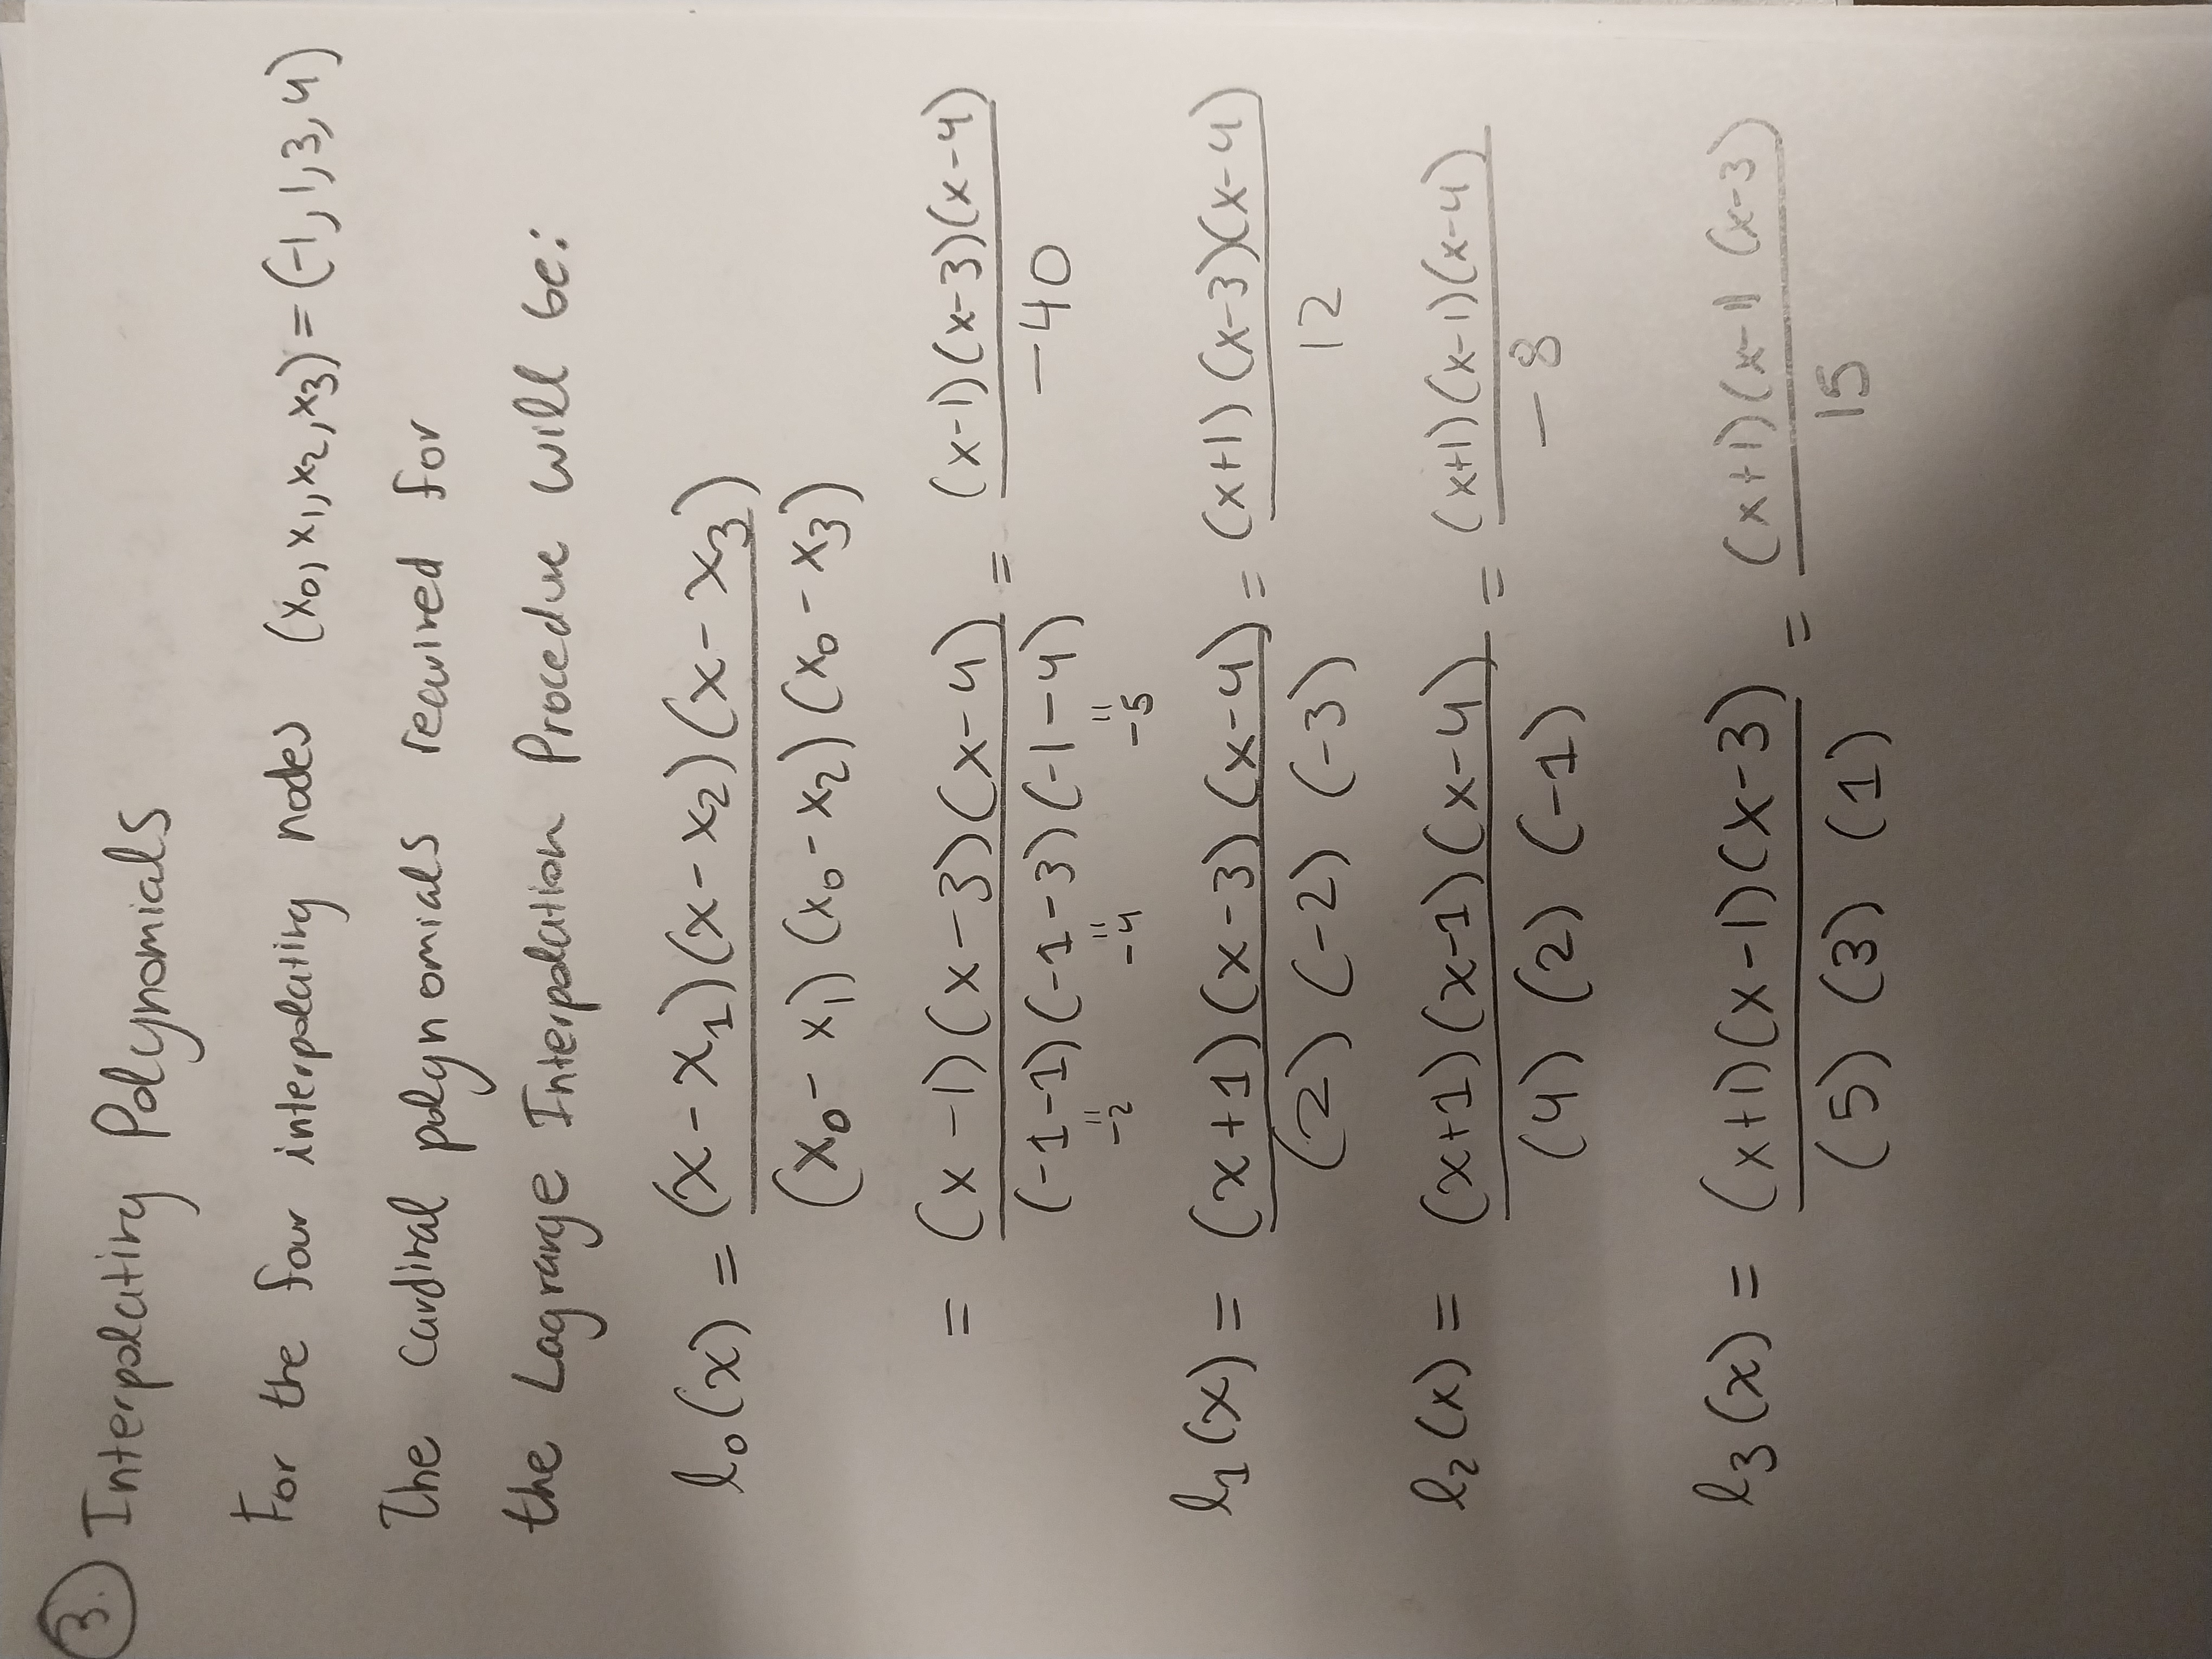 3. Interpolating Polynomials
For the four interpolating nodes (x₀, x₁, x₂, x₃) = (-1, 1, 3, 4)
The cardinal polynomials required for
the Lagrange Interpolation Procedure will be:
l₀(x) = (x - x₁)(x - x₂)(x - x₃)
(x₀ - x₁)(x₀ - x₂)(x₀ - x₃)
= (x-1)(x-3)(x-4) = (x-1)(x-3)(x-4)
(-1-1)(-1-3)(-1-4) -40
" " "
-2 -4 -5
l₁(x) = (x+1)(x-3)(x-4) = (x+1)(x-3)(x-4)
(2)(-2)(-3) 12
l₂(x) = (x+1)(x-1)(x-4) = (x+1)(x-1)(x-4)
(4)(2)(-1) -8
l₃(x) = (x+1)(x-1)(x-3) = (x+1)(x-1)(x-3)
(5)(3)(1) 15